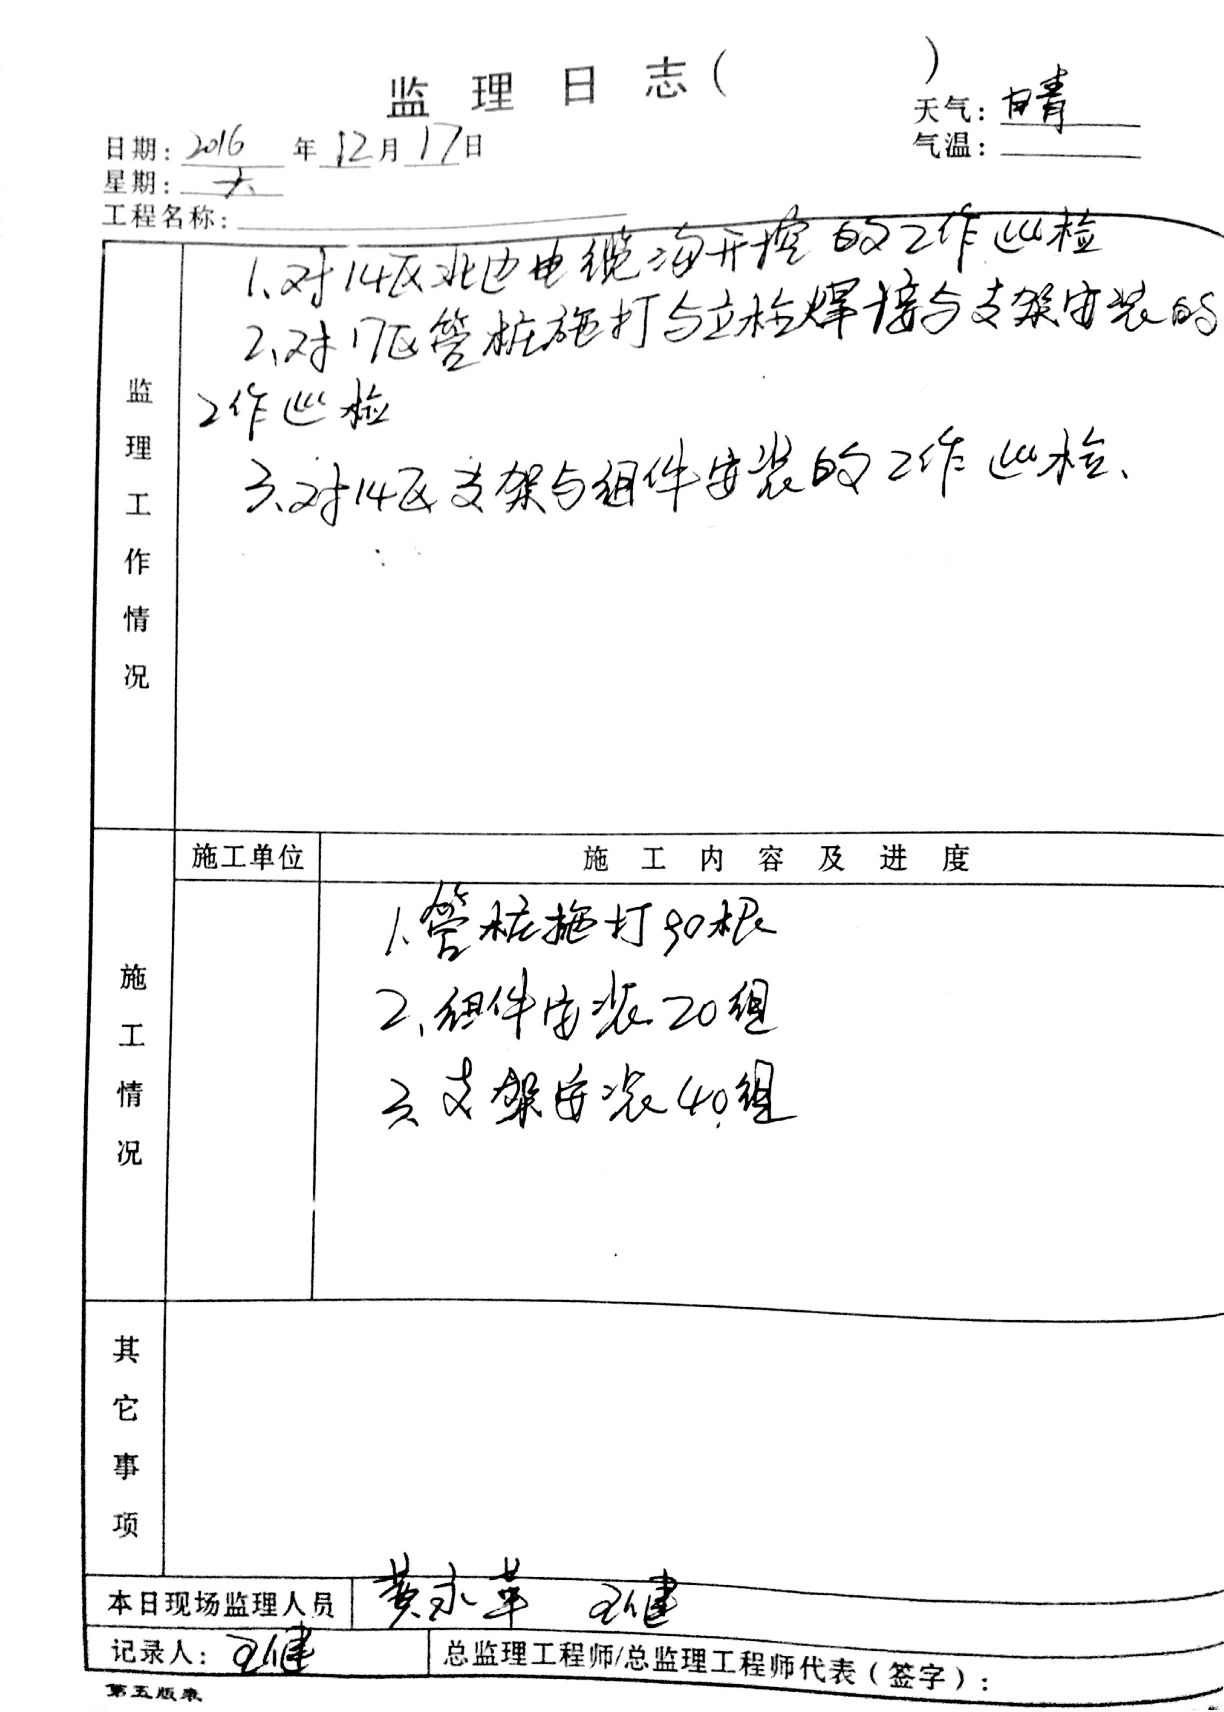 监 理 日 志 ( )
天气: 晴
日期: 2016 年 12 月 17 日
气温:
星期: 六
工程名称:
监理工作情况
1、对14区北边电缆沟开挖的工作巡检
2、对17区管桩施打与立柱焊接与支架安装的
工作巡检
3、对14区支架与组件安装的工作巡检、
施工单位 施 工 内 容 及 进 度
施工情况
1、管桩施打90根
2、组件安装20组
3、支架安装40组
其它事项
本日现场监理人员 黄永革 王健
记录人: 王健 总监理工程师/总监理工程师代表(签字):
第五版表